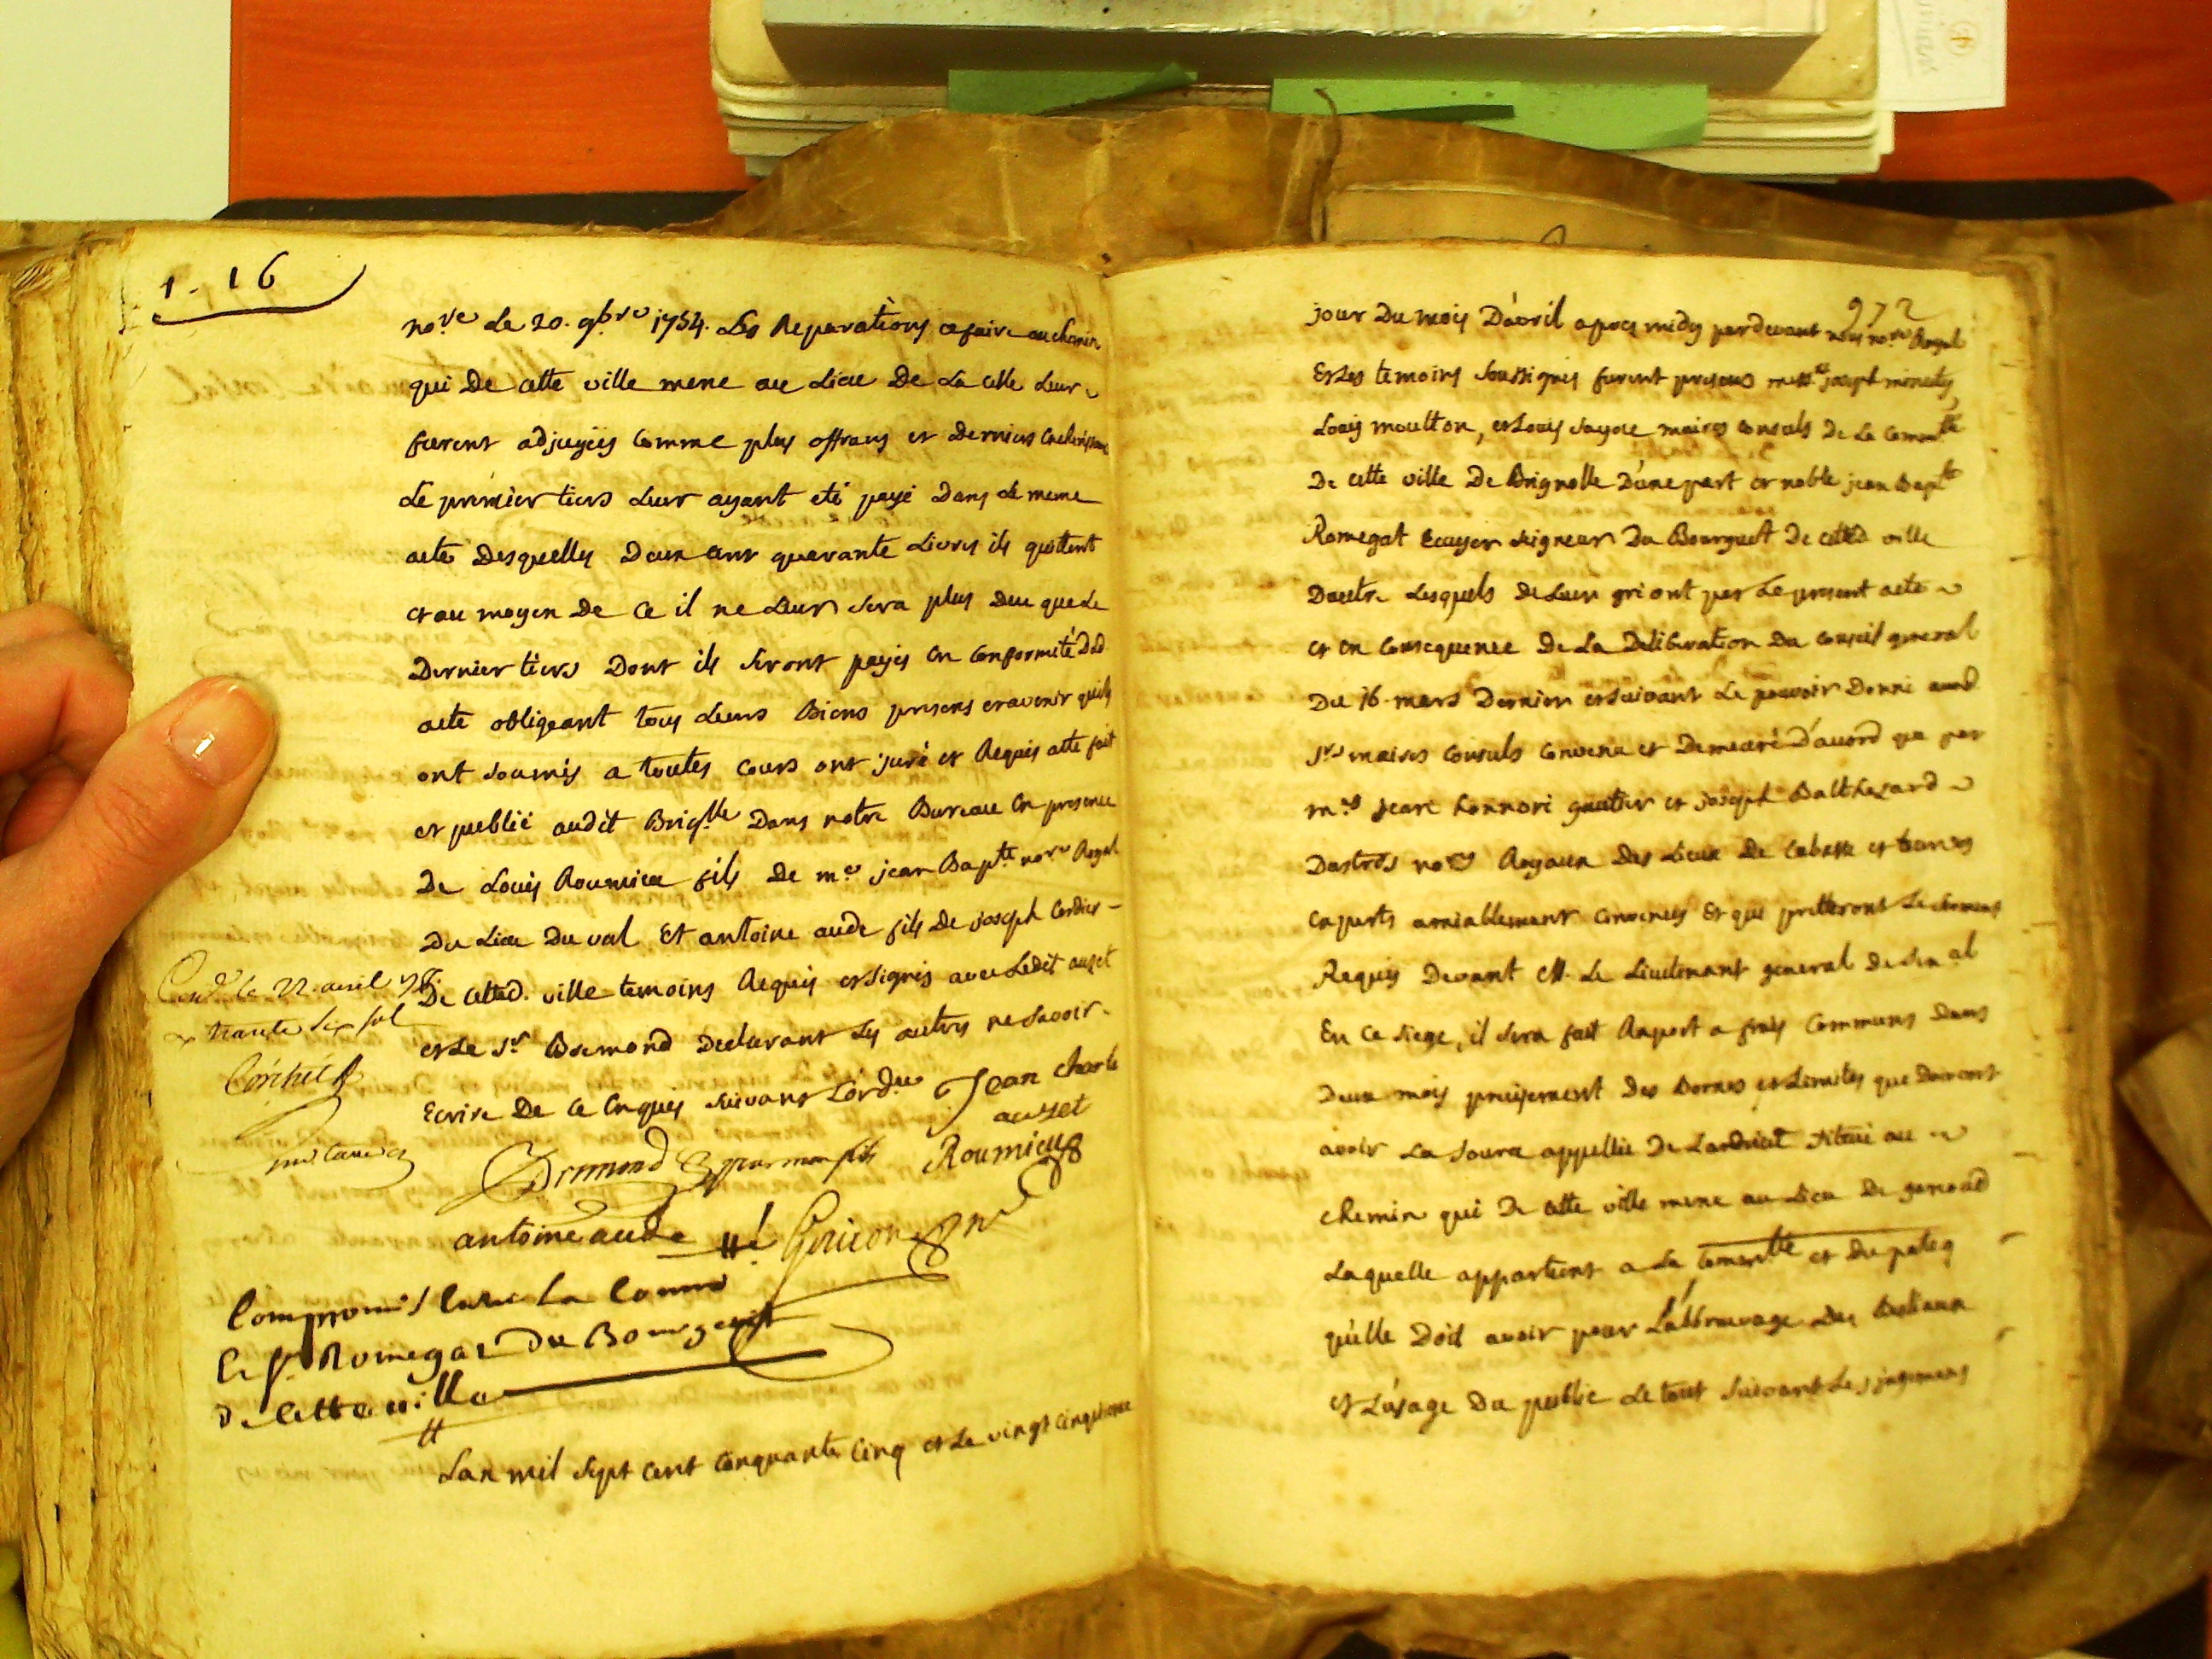 1. 16
no.re Le 20. 9bre 1754. Les Reparations a faire au chemin
qui De cette ville mene au Lieu De La celle Leur
furent adjugées comme plus offrans et Derniers Encherisseurs
Le premier tiers Leur ayant eté payé Dans Le meme
acte Desquelles Deux cent quarante Livres ils quittent
et au moyen De ce il ne Leur sera plus deu que Le
Dernier tiers Dont ils seront payés en conformité Dud
acte obligeant tous Leurs Biens presens et avenir quils
ont soumis a toutes cours ont juré et Requis acte fait
et publié audit Brig.lle Dans notre Bureau En presence
De Louis Roumieu fils De m.e jean Bap.te no.re Royal
Du Lieu Du val Et antoine aude fils De joseph Cordier
De cetted. ville temoins Requis et signés avec Ledit auzet
et Le s.r Bremond Declarant Les autres ne savoir
Ecrire De ce Enquis suivant L'ord.ce Jean charle
auzet
Bremond Roumieu
antoine aude
Con.lé le 22. avril
trente six sol
Compromis Entre La Com.té
Le s.r Romegat Du Bourguet
De Cette ville
Lan mil sept cent cinquante cinq et Le vingt cinquieme
972
jour Du mois D'avril apres midy pardevant nous no.re Royal
Et Les temoins soussignés furent presens mess.rs joseph minuty,
Louis moutton, et Louis maires consuls De La Commu.té
De cette ville De Brignolle D'une part et noble jean Bap.te
Romegat Ecuyer seigneur Du Bourguet De cetted ville
Dautre Lesquels De Leur gré ont par Le present acte
et en consequence De La Deliberation Du conseil general
Du 16 mars Dernier et suivant Le pouvoir Donné auxd
s.rs maires consuls convenu et Demeuré D'acord que par
m.es jean honnoré gautier et joseph Balthezard
Dastros no.res Royaux Des Lieux De Cabasse et tourves
experts amiablement convenus Et qui pretteront Le serment
Requis Devant M. Le Lieutenant general De sen.al
En ce siege, il sera fait Raport a frais communs Dans
Deux mois precisement Des Bornes et Limites que Doivent
avoir La source appellée De situé au
chemin qui De cette ville mene au Lieu De
Laquelle appartient a La Comun.té et Du pateq
qu'elle Doit avoir pour L'abbreuvage Des Bestiaux
et L'usage Du public Le tout suivant Les jugemens